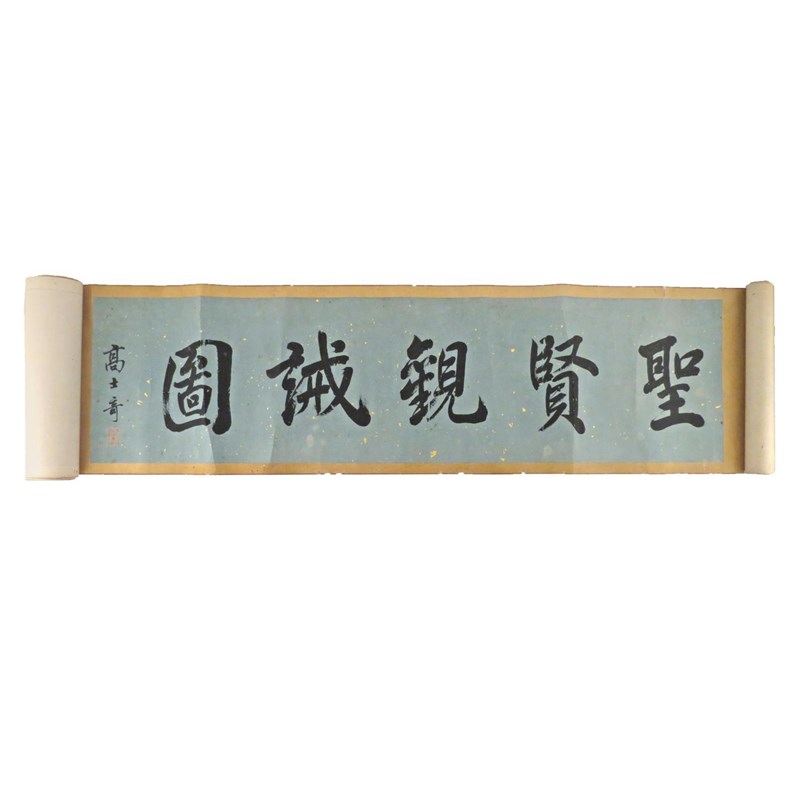 聖賢觀誡圖
高士奇